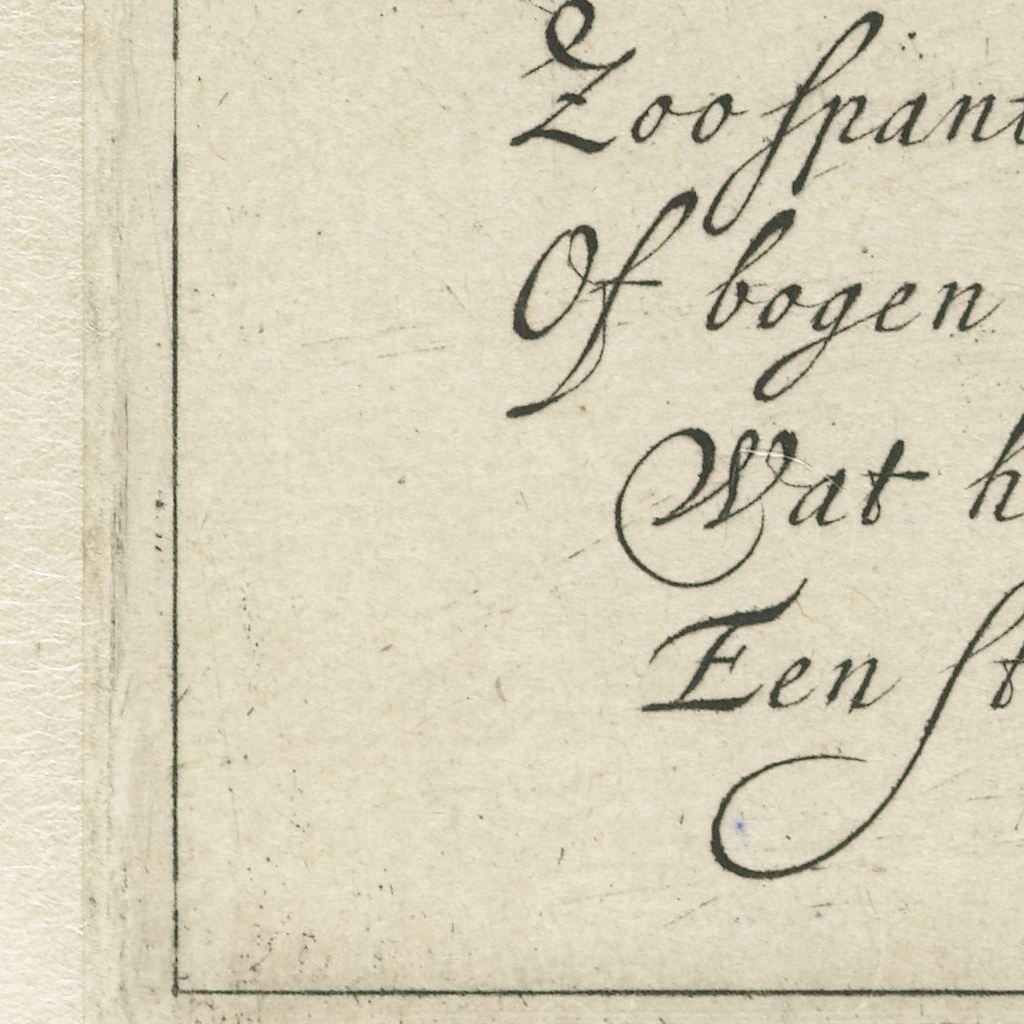 Zoo spant
Of bogen
Wat h
Een st